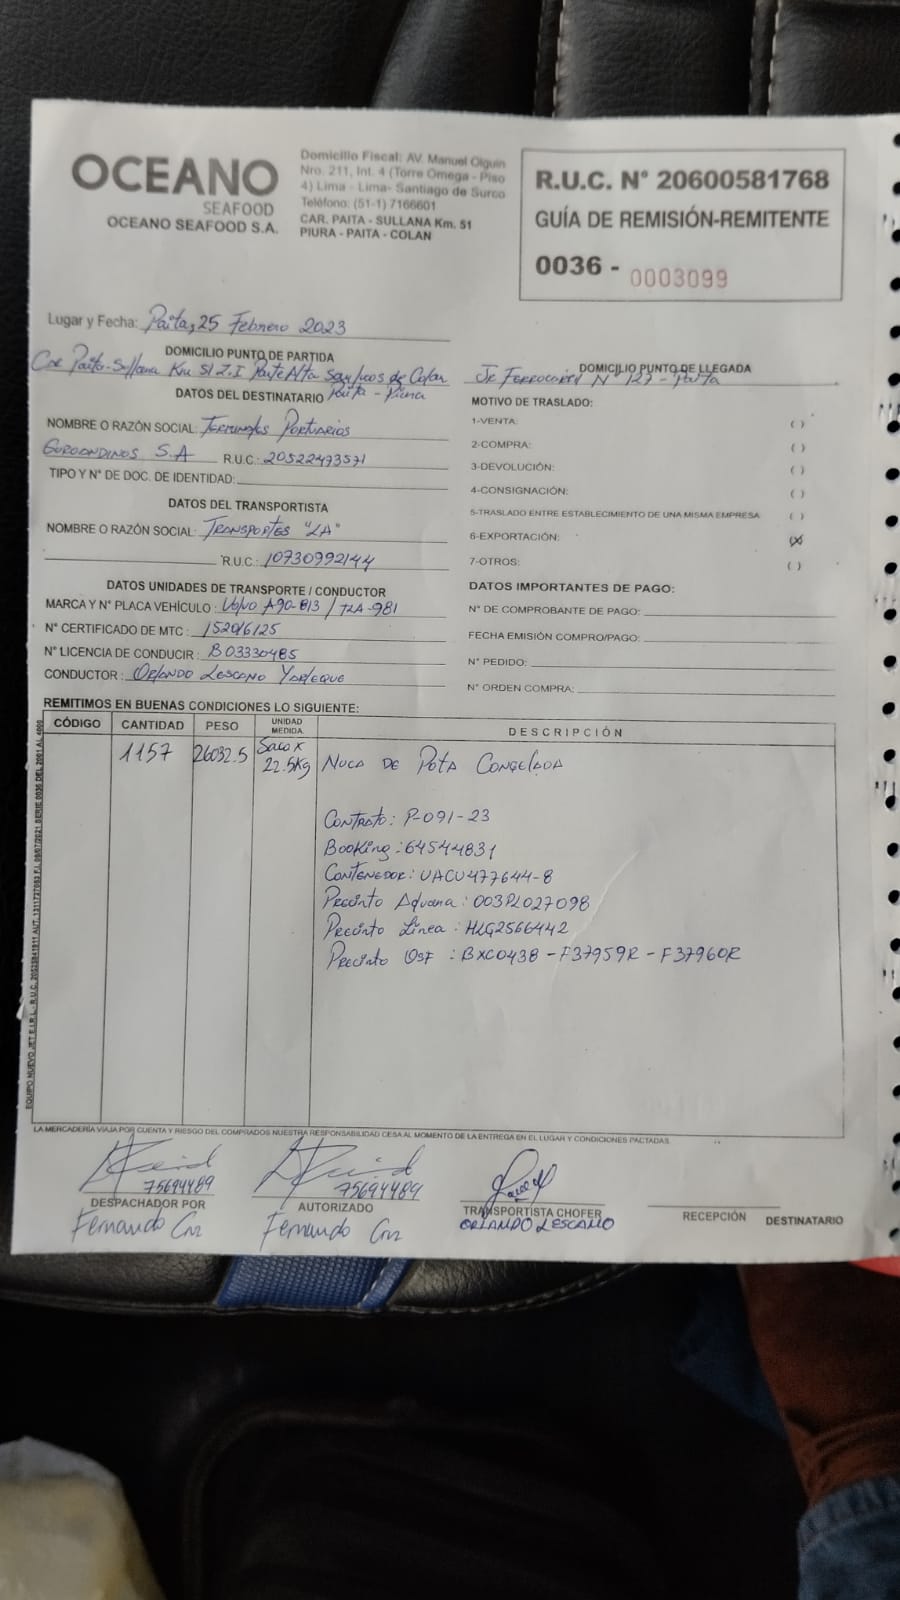 OCEANO
SEAFOOD
OCEANO SEAFOOD S.A.
Domicilio Fiscal: AV. Manuel Olguin
Nro. 211, Int. 4 (Torre Omega - Piso
4) Lima - Lima- Santiago de Surco
Teléfono: (51-1) 7166601
CAR. PAITA - SULLANA Km. 51
PIURA - PAITA - COLAN
R.U.C. N° 20600581768
GUÍA DE REMISIÓN-REMITENTE
0036 - 0003099
Lugar y Fecha: Paita, 25 Febrero 2023
DOMICILIO PUNTO DE PARTIDA
Car Paita-Sullana Km 51 Z.I Parte Alta San Lucas de Colan
Paita - Piura
DOMICILIO PUNTO DE LLEGADA
Jr Ferrocarril N° 127 - Paita
DATOS DEL DESTINATARIO
NOMBRE O RAZÓN SOCIAL: Terminales Portuarios
Euroandinos S.A R.U.C.: 20522473571
TIPO Y N° DE DOC. DE IDENTIDAD:
DATOS DEL TRANSPORTISTA
NOMBRE O RAZÓN SOCIAL: Transportes "LA"
R.U.C.: 10730992144
DATOS UNIDADES DE TRANSPORTE / CONDUCTOR
MARCA Y N° PLACA VEHÍCULO: Volvo A90-813 / TZA-981
N° CERTIFICADO DE MTC: 152016125
N° LICENCIA DE CONDUCIR: B03330485
CONDUCTOR: Orlando Lescano Yarleque
MOTIVO DE TRASLADO:
1-VENTA: ( )
2-COMPRA: ( )
3-DEVOLUCIÓN: ( )
4-CONSIGNACIÓN: ( )
5-TRASLADO ENTRE ESTABLECIMIENTO DE UNA MISMA EMPRESA ( )
6-EXPORTACIÓN: (X)
7-OTROS: ( )
DATOS IMPORTANTES DE PAGO:
N° DE COMPROBANTE DE PAGO:
FECHA EMISIÓN COMPRO/PAGO:
N° PEDIDO:
N° ORDEN COMPRA:
REMITIMOS EN BUENAS CONDICIONES LO SIGUIENTE:
CÓDIGO CANTIDAD PESO UNIDAD MEDIDA DESCRIPCIÓN
1157 26032.5 Saco x 22.5Kg Nuca de Pota Congelada
Contrato: P-091-23
Booking: 64544831
Contenedor: UACU477644-8
Precinto Aduana: 003PL027098
Precinto Línea: HLG2566442
Precinto OSF: BXC0438 - F37959R - F37960R
LA MERCADERÍA VIAJA POR CUENTA Y RIESGO DEL COMPRADOS NUESTRA RESPONSABILIDAD CESA AL MOMENTO DE LA ENTREGA EN EL LUGAR Y CONDICIONES PACTADAS.
75694489
DESPACHADOR POR
Fernando Cruz
75694489
AUTORIZADO
Fernando Cruz
TRANSPORTISTA CHOFER
ORLANDO LESCANO
RECEPCIÓN DESTINATARIO